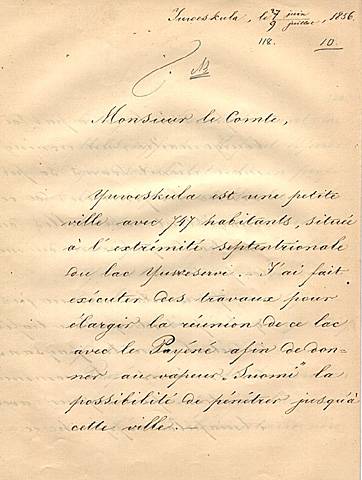 Yuweskula, le 27 juin / 9 juillet, 1856
118. 10.
Monsieur le Comte,
Yuweskula est une petite
ville avec 747 habitants, située
à l'extrémité septentrionale
du lac Yuwesewi. J'ai fait
exécuter des travaux pour
élarger la réunion de ce lac
avec le Payéné afin de don=
ner au vapeur "Suomi" la
possibilité de pénétrer jusqu'à
cette ville.—